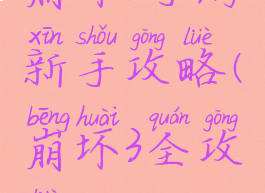 xīn shǒu gōng lüè
新手攻略(
bēng huài quán gōng
崩坏3全攻